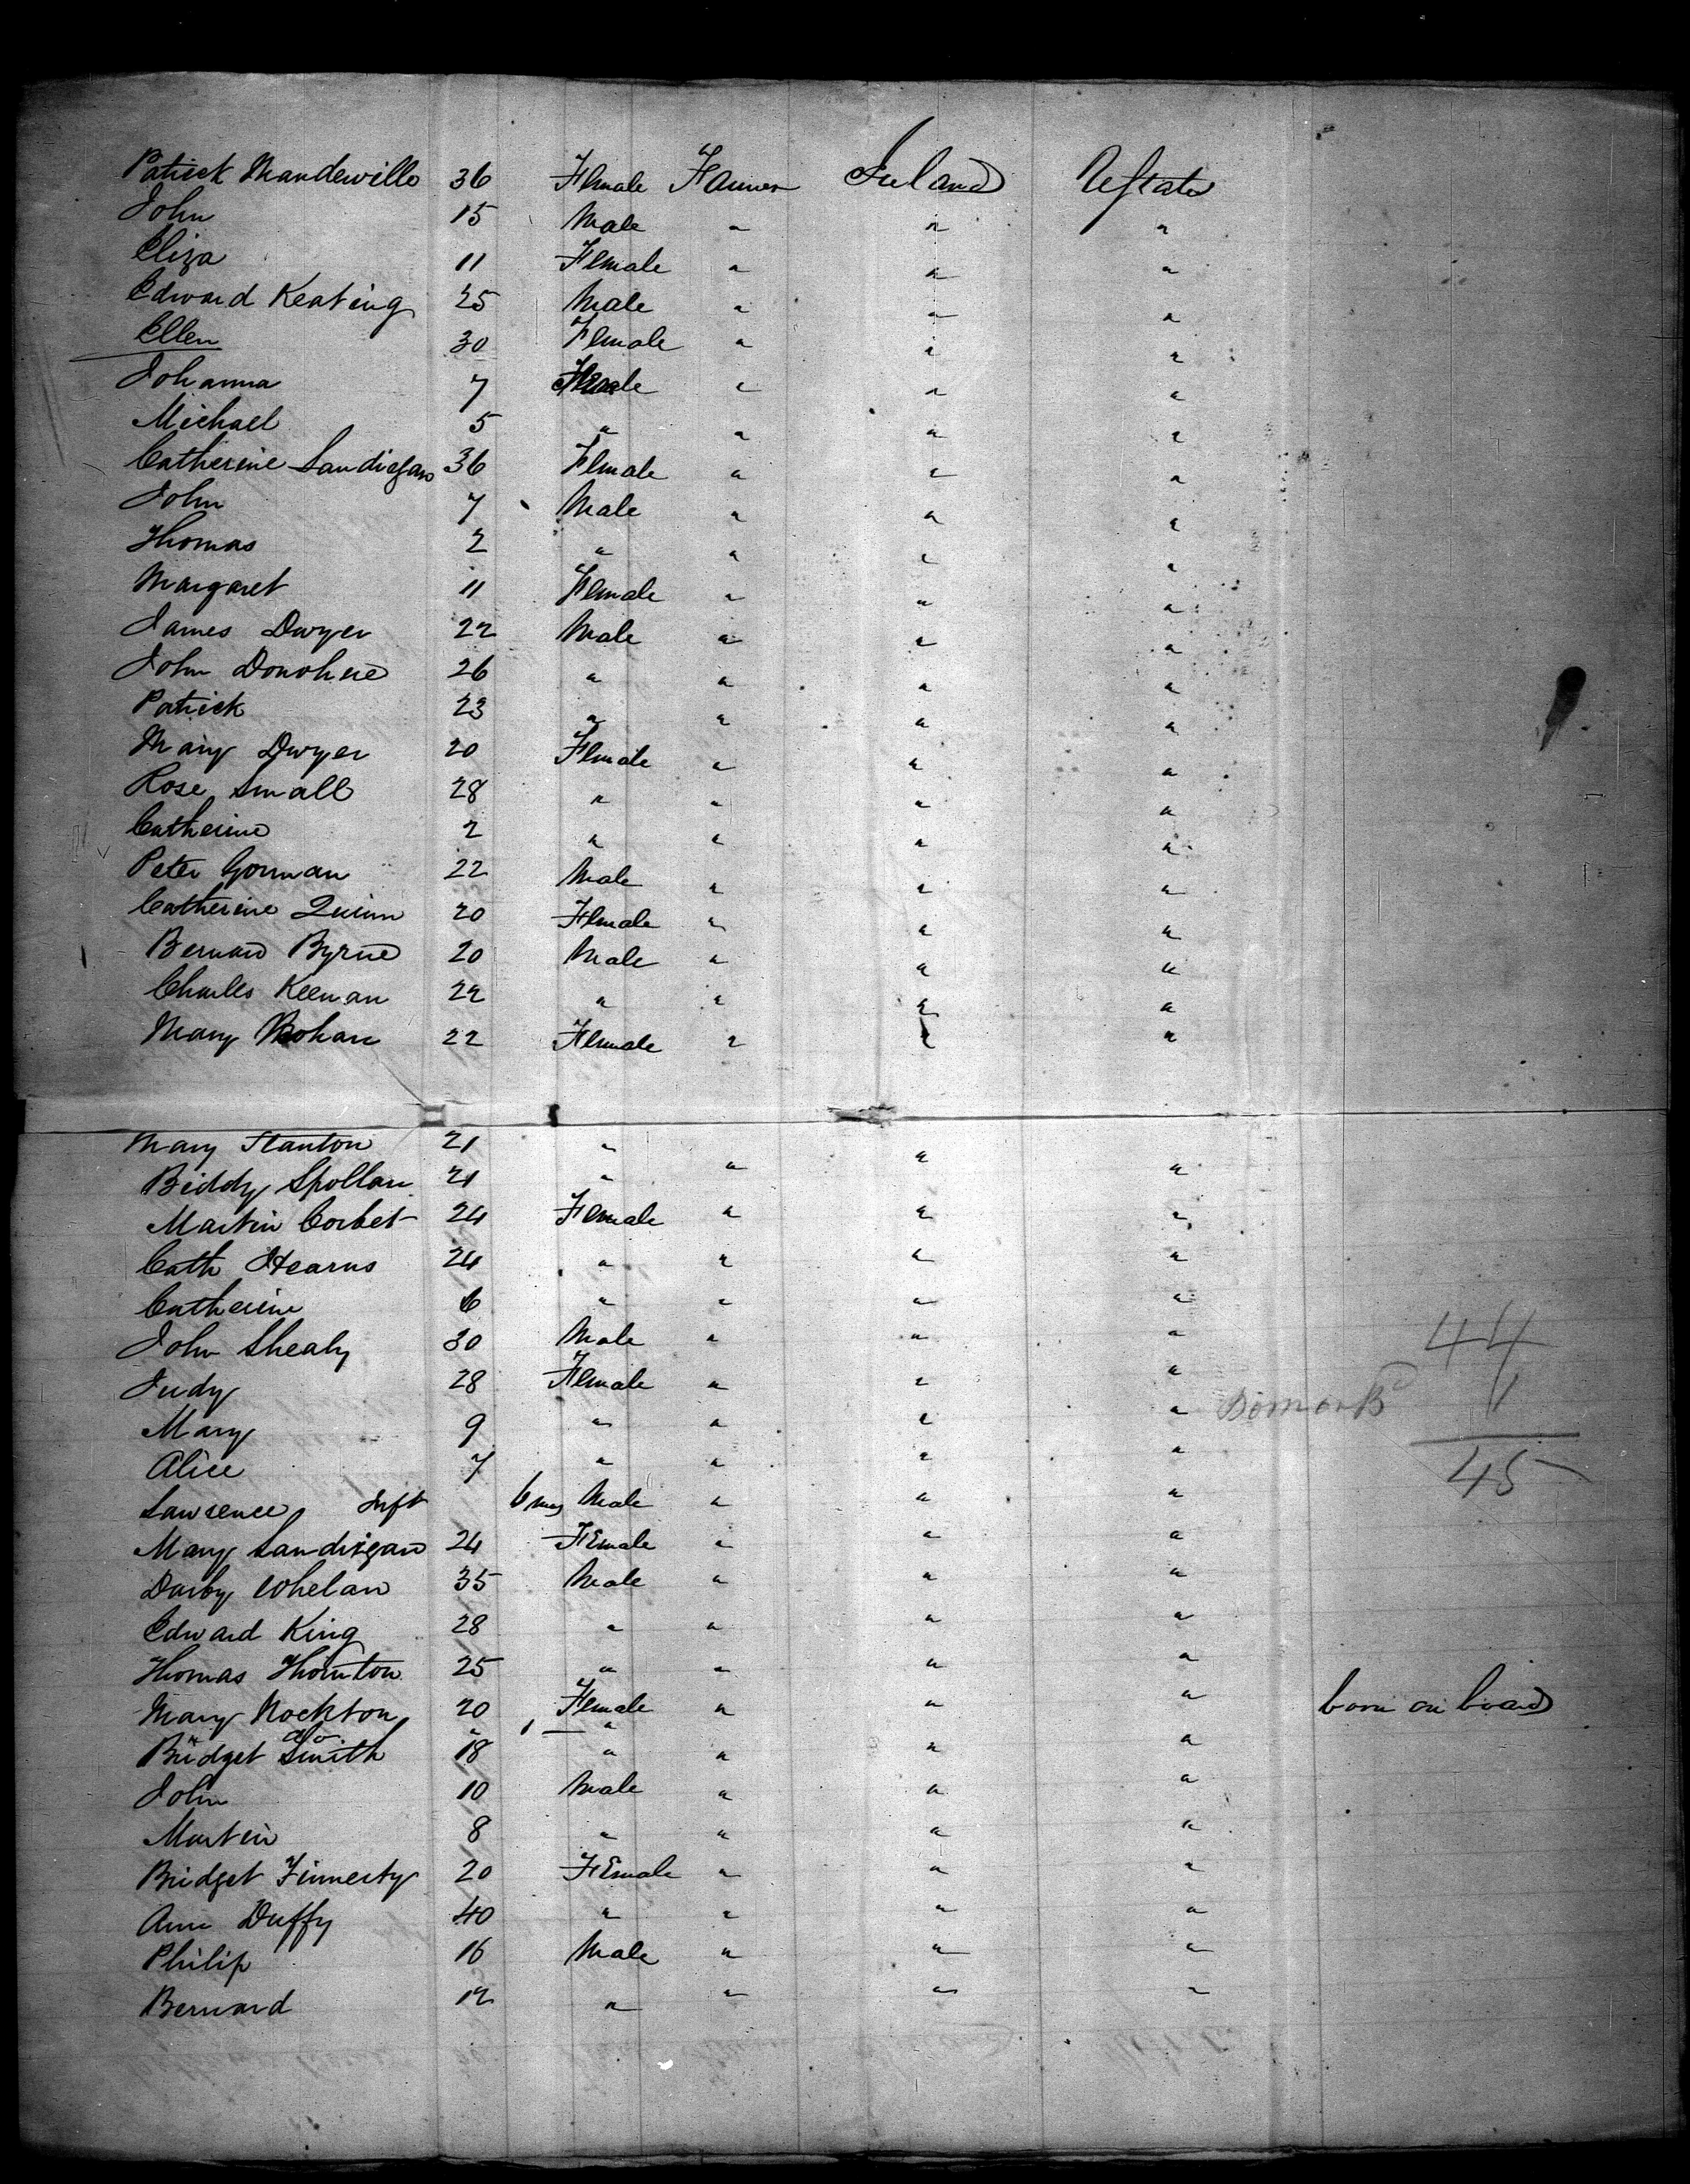 Patrick Mandewille 36 Female Farmer Ireland Ustates
John 15 Male " " "
Eliza 11 Female " " "
Edward Keating 25 Male " " "
Ellen 30 Female " " "
Johanna 7 Male " " "
Michael 5 " " " "
Catherine Landigan 36 Female " " "
John 7 Male " " "
Thomas 2 " " " "
Margaret 11 Female " " "
James Dwyer 22 Male " " "
John Donohue 26 " " " "
Patrick 23 " " " "
Mary Dwyer 20 Female " " "
Rose Small 28 " " " "
Catherine 2 " " " "
Peter Gorman 22 Male " " "
Catherine Quinn 20 Female " " "
Bernard Byrne 20 Male " " "
Charles Keenan 22 " " " "
Mary Bohan 22 Female " " "
Mary Stanton 21 " " " "
Biddy Spollan 21 " " " "
Martin Corbet 24 Female " " "
Cath Hearns 24 " " " "
Catherine 6 " " " "
John Shealy 30 Male " " "
Judy 28 Female " " " 44
Mary 9 " " " " Born on B 1
Alice 7 " " " " 45
Lawrence Inft 6 mos Male " " "
Mary Landrigan 24 Female " " "
Darby Whelan 35 Male " " "
Edward King 28 " " " "
Thomas Thornton 25 " " " "
Mary Nockton 20 Female " " " born on board
" do 1 "
Bridget Smith 18 " " " "
John 10 Male " " "
Martin 8 " " " "
Bridget Finnerty 20 Female " " "
Ann Duffy 40 " " " "
Philip 16 Male " " "
Bernard 12 " " " "